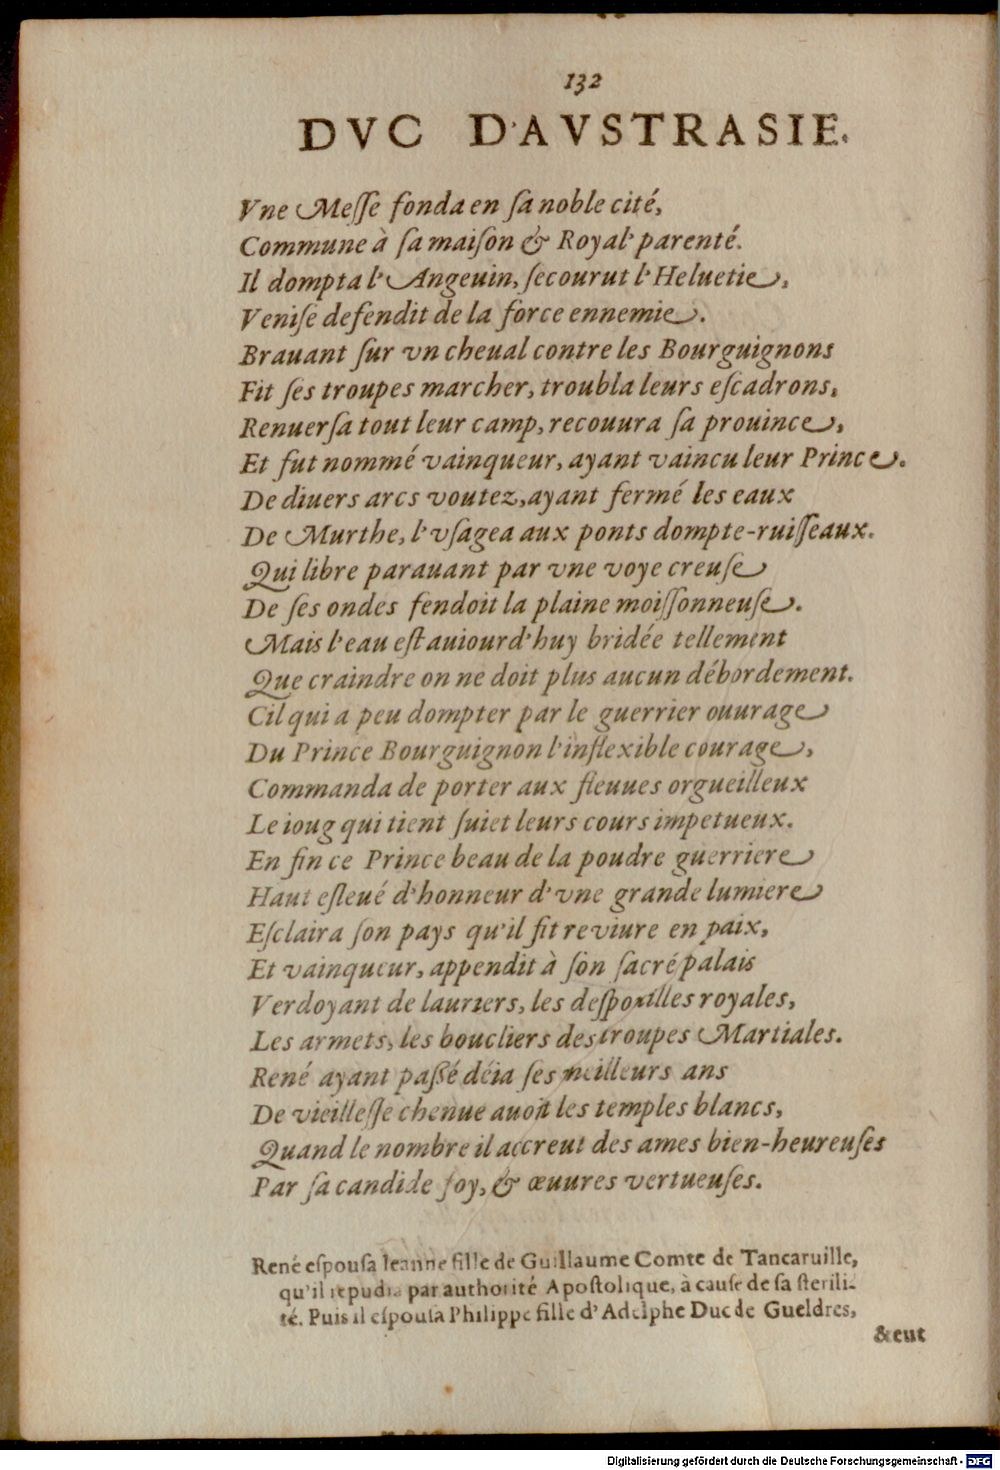 132
DVC D'AVSTRASIE.
Vne Meſſe fonda en ſa noble cité,
Commune à ſa maiſon & Royal' parenté.
Il dompta l'Angeuin, ſecourut l'Heluetie,
Veniſe defendit de la force ennemie.
Brauant ſur vn cheual contre les Bourguignons
Fit ſes troupes marcher, troubla leurs eſcadrons,
Renuerſa tout leur camp, recouura ſa prouince,
Et fut nommé vainqueur, ayant vaincu leur Prince.
De diuers arcs voutez, ayant fermé les eaux
De Murthe, l'vſagea aux ponts dompte-ruiſſeaux.
Qui libre parauant par vne voye creuſe
De ſes ondes fendoit la plaine moiſſonneuſe.
Mais l'eau eſt auiourd'huy bridée tellement
Que craindre on ne doit plus aucun débordement.
Cil qui a peu dompter par le guerrier ouurage
Du Prince Bourguignon l'inflexible courage,
Commanda de porter aux fleuues orgueilleux
Le ioug qui tient ſuiet leurs cours impetueux.
En fin ce Prince beau de la poudre guerriere
Haut eſleué d'honneur d'vne grande lumiere
Eſclaira ſon pays qu'il fit reviure en paix,
Et vainqueur, appendit à ſon ſacré palais
Verdoyant de lauriers, les deſpouilles royales,
Les armets, les boucliers des troupes Martiales.
René ayant paßé déia ſes meilleurs ans
De vieilleſſe chenue auoit les temples blancs,
Quand le nombre il accreut des ames bien-heureuſes
Par ſa candide foy, & œuures vertueuſes.
René eſpouſa Ieanne fille de Guillaume Comte de Tancaruille,
qu'il repudia par authorité Apoſtolique, à cauſe de ſa ſterili-
té. Puis il eſpouſa Philippe fille d'Adelphe Duc de Gueldres,
& eut
Digitalisierung gefördert durch die Deutsche Forschungsgemeinschaft - DFG